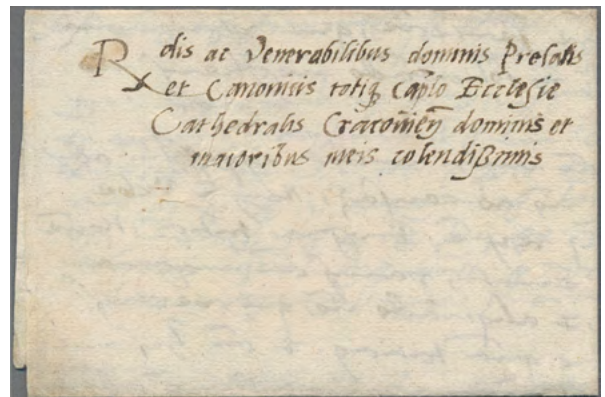 Rdis ac Venerabilibus dominis Prelatis
et Canonicis totiq Caplo Ecclesie
Cathedralis Cracovień dominis et
maioribus meis colendißimis